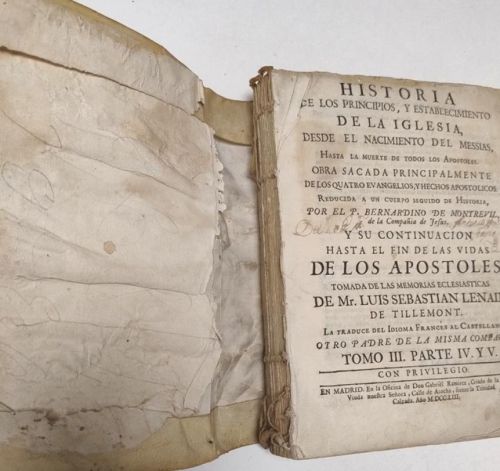 HISTORIA
DE LOS PRINCIPIOS, Y ESTABLECIMIENTO
DE LA IGLESIA,
DESDE EL NACIMIENTO DEL MESSIAS,
HASTA LA MUERTE DE TODOS LOS APOSTOLES.
OBRA SACADA PRINCIPALMENTE
DE LOS QUATRO EVANGELIOS, Y HECHOS APOSTOLICOS
REDUCIDA A UN CUERPO SEGUIDO DE HISTORIA,
POR EL P. BERNARDINO DE MONTREVIL
de la Compañia de Jesus,
Y SU CONTINUACION
HASTA EL FIN DE LAS VIDAS
DE LOS APOSTOLES
TOMADA DE LAS MEMORIAS ECLESIASTICAS
DE Mr. LUIS SEBASTIAN LENAI
DE TILLEMONT.
LA TRADUCE DEL IDIOMA FRANCÉS AL CASTELLAN
OTRO PADRE DE LA MISMA COMPAÑ
TOMO III. PARTE IV. Y V.
CON PRIVILEGIO.
EN MADRID. En la Oficina de Don Gabriel Ramirez, Criado de la
Viuda nuestra Señora, Calle de Atocha, frente la Trinidad
Calzada. Año M.DCC.LIII.